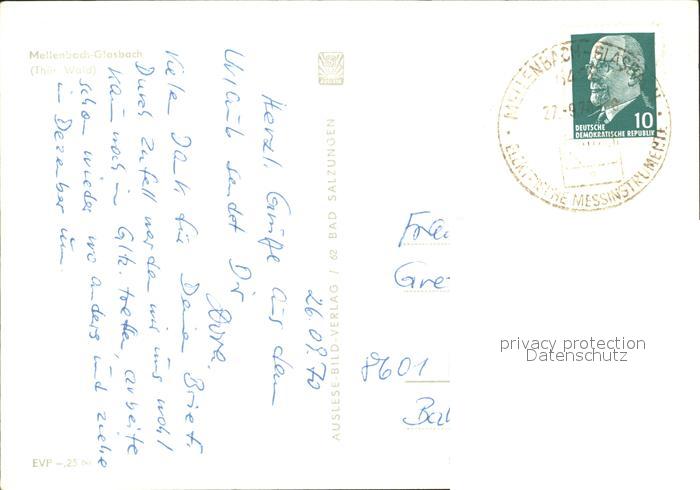 Mellenbach-Glasbach
(Thür. Wald)
26.09.70
Herzl. Grüße aus dem
Urlaub sendet Dir
Dora.
Vielen Dank für Deinen Brief.
Durch Zufall werden wir uns wohl
kaum noch in treffen, arbeite
schon wieder wo anders und ziehe
im Dezember um.
EVP -,25
AUSLESE-BILD-VERLAG / 62 BAD SALZUNGEN
MELLENBACH-GLASBACH
27.-9.70
ELEKTRISCHE MESSINSTRUMENTE
10
DEUTSCHE
DEMOKRATISCHE REPUBLIK
Frau
Gre
8601
privacy protection
Datenschutz